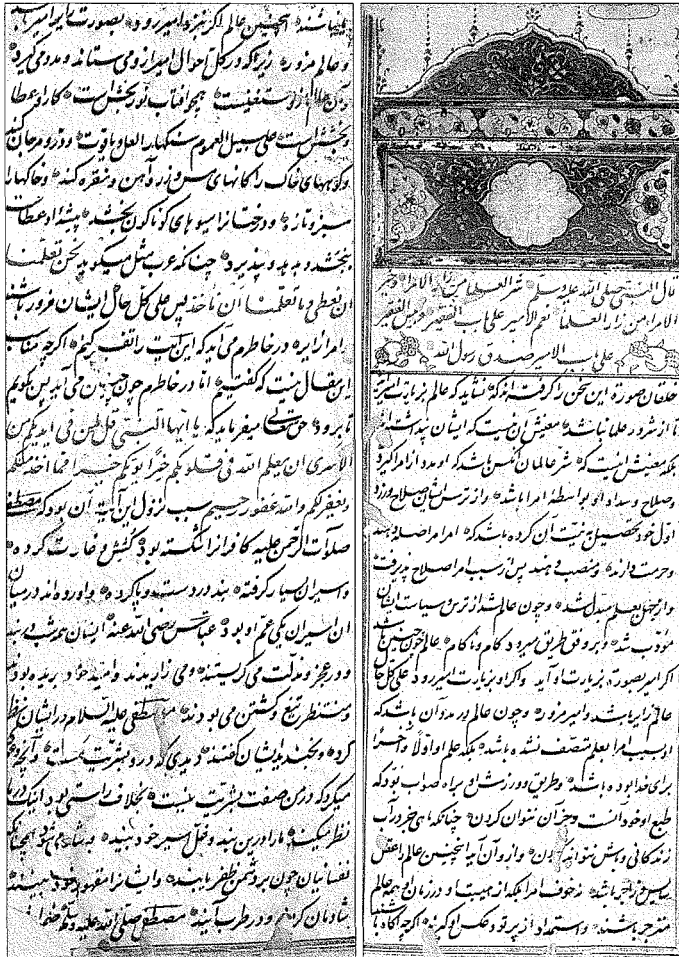 قال النبی صلی الله علیه وسلم شر العلما من زار الامرا وخیر
الامرا من زار العلما نعم الامیر علی باب الفقیر وبئس الفقیر
علی باب الامیر صدق رسول الله
خلقان صورة این سخن را گرفته‌اند که نشاید که عالم بزیارت امیر
تا از شرور علما نباشد معنیش این نیست که ایشان پنداشته‌اند
بلکه معنیش اینست که شر عالمان آنکس باشد که او مدد از امرا گیرد
وصلاح وسداد او بواسطهٔ امرا باشد واز ترس ایشان صلاح ورزد
اول خود تحصیل به نیت آن کرده باشد که امرا مرا صله دهند
وحرمت دارند ومنصب دهند پس از سبب امرا اصلاح پذیرفت
واز جهل بعلم مبدل شد وچون عالم شد از ترس وسیاست ایشان
مؤدب شد وبر وفق طریق میرود کام وناکام عالم چون چنین باشد
اگر امیر بصورت بزیارت او آید واگر او بزیارت امیر رود علی کل حال
عالم زایر باشد وامیر مزور وچون عالم در صدد آن باشد که
از سبب امرا بعلم متصف نشده باشد بلکه علم او اولا وآخرا
برای خدا بوده باشد وطریق وورزش او براه صواب بود که
طبع او خود آنست وجز آن نتواند کردن چنانکه ماهی جز در آب
زندگانی وباش نتواند کردن وازو آن آید اینچنین عالم را عقل
سایس وزاجر باشد ز خوف امرا بلکه از هیبت او در زمان او همه عالم
منزجر باشند واستمداد از پرتو وعکس او گیرند اگر چه آگاه باشند
یا نباشند اینچنین عالم اگر نزد امیر رود بصورت زایر امیر باشد
وعالم مزور زیرا که در کل احوال امیر از او میستاند ومدد میگیرد
وآن عالم از او مستغنیست همچو آفتاب نور بخش است کار او عطا
وبخشش است علی سبیل العموم سنگها را لعل ویاقوت ودر ومرجان کند
وکوههای خاک را کانهای مس وزر وآهن ونقره کند وخاکها را
سبز وتازه ودرختانرا میوهای گوناگون بخشد پیشهٔ او عطاست
ببخشد وبدهد ونپذیرد چنانکه عرب مثل میگوید نحن تعلمنا
ان نعطی ما تعلمنا ان ناخذ پس علی کل حال ایشان مزور باشند
وامرا زایر در خاطرم می آید که این آیت را تفسیر کنم اگر چه مناسب
این مقال نیست که گفتیم اما در خاطرم چون چنین می آید پس بگویم
تا برود حق تعالی میفرماید که یا ایها النبی قل لمن فی ایدیکم من
الاسری ان یعلم الله فی قلوبکم خیرا یؤتکم خیرا مما اخذ منکم
ویغفر لکم والله غفور رحیم سبب نزول این آیت آن بود که مصطفی
صلوات الرحمن علیه کافرانرا شکسته بود کشش وغارت کرده
واسیران بسیار گرفته بند در دست وپا کرده وآورده اند در میان
آن اسیران یکی عم او بود عباس رضی الله عنه ایشان همه شب در بند
ودر عجز ومذلت می گریستند ومی زاریدند وامید از خود بریده بودند
ومنتظر تیغ وکشتن می بودند مصطفی علیه السلام در ایشان نظر
کرد وبخندید ایشان گفتند دیدی که درو بشریت هست وآنچه دعوی
میکرد که در من صفت بشریت نیست بخلاف راستی بود اینک در ما
نظر میکند ما را درین بند وغل اسیر خود بیند شاد می شود همچنانکه
نفسانیان چون بر دشمن ظفر یابند وایشانرا مقهور خود بینند
شادمان گردند ودر طرب آیند مصطفی صلی الله علیه وسلم ضمیر